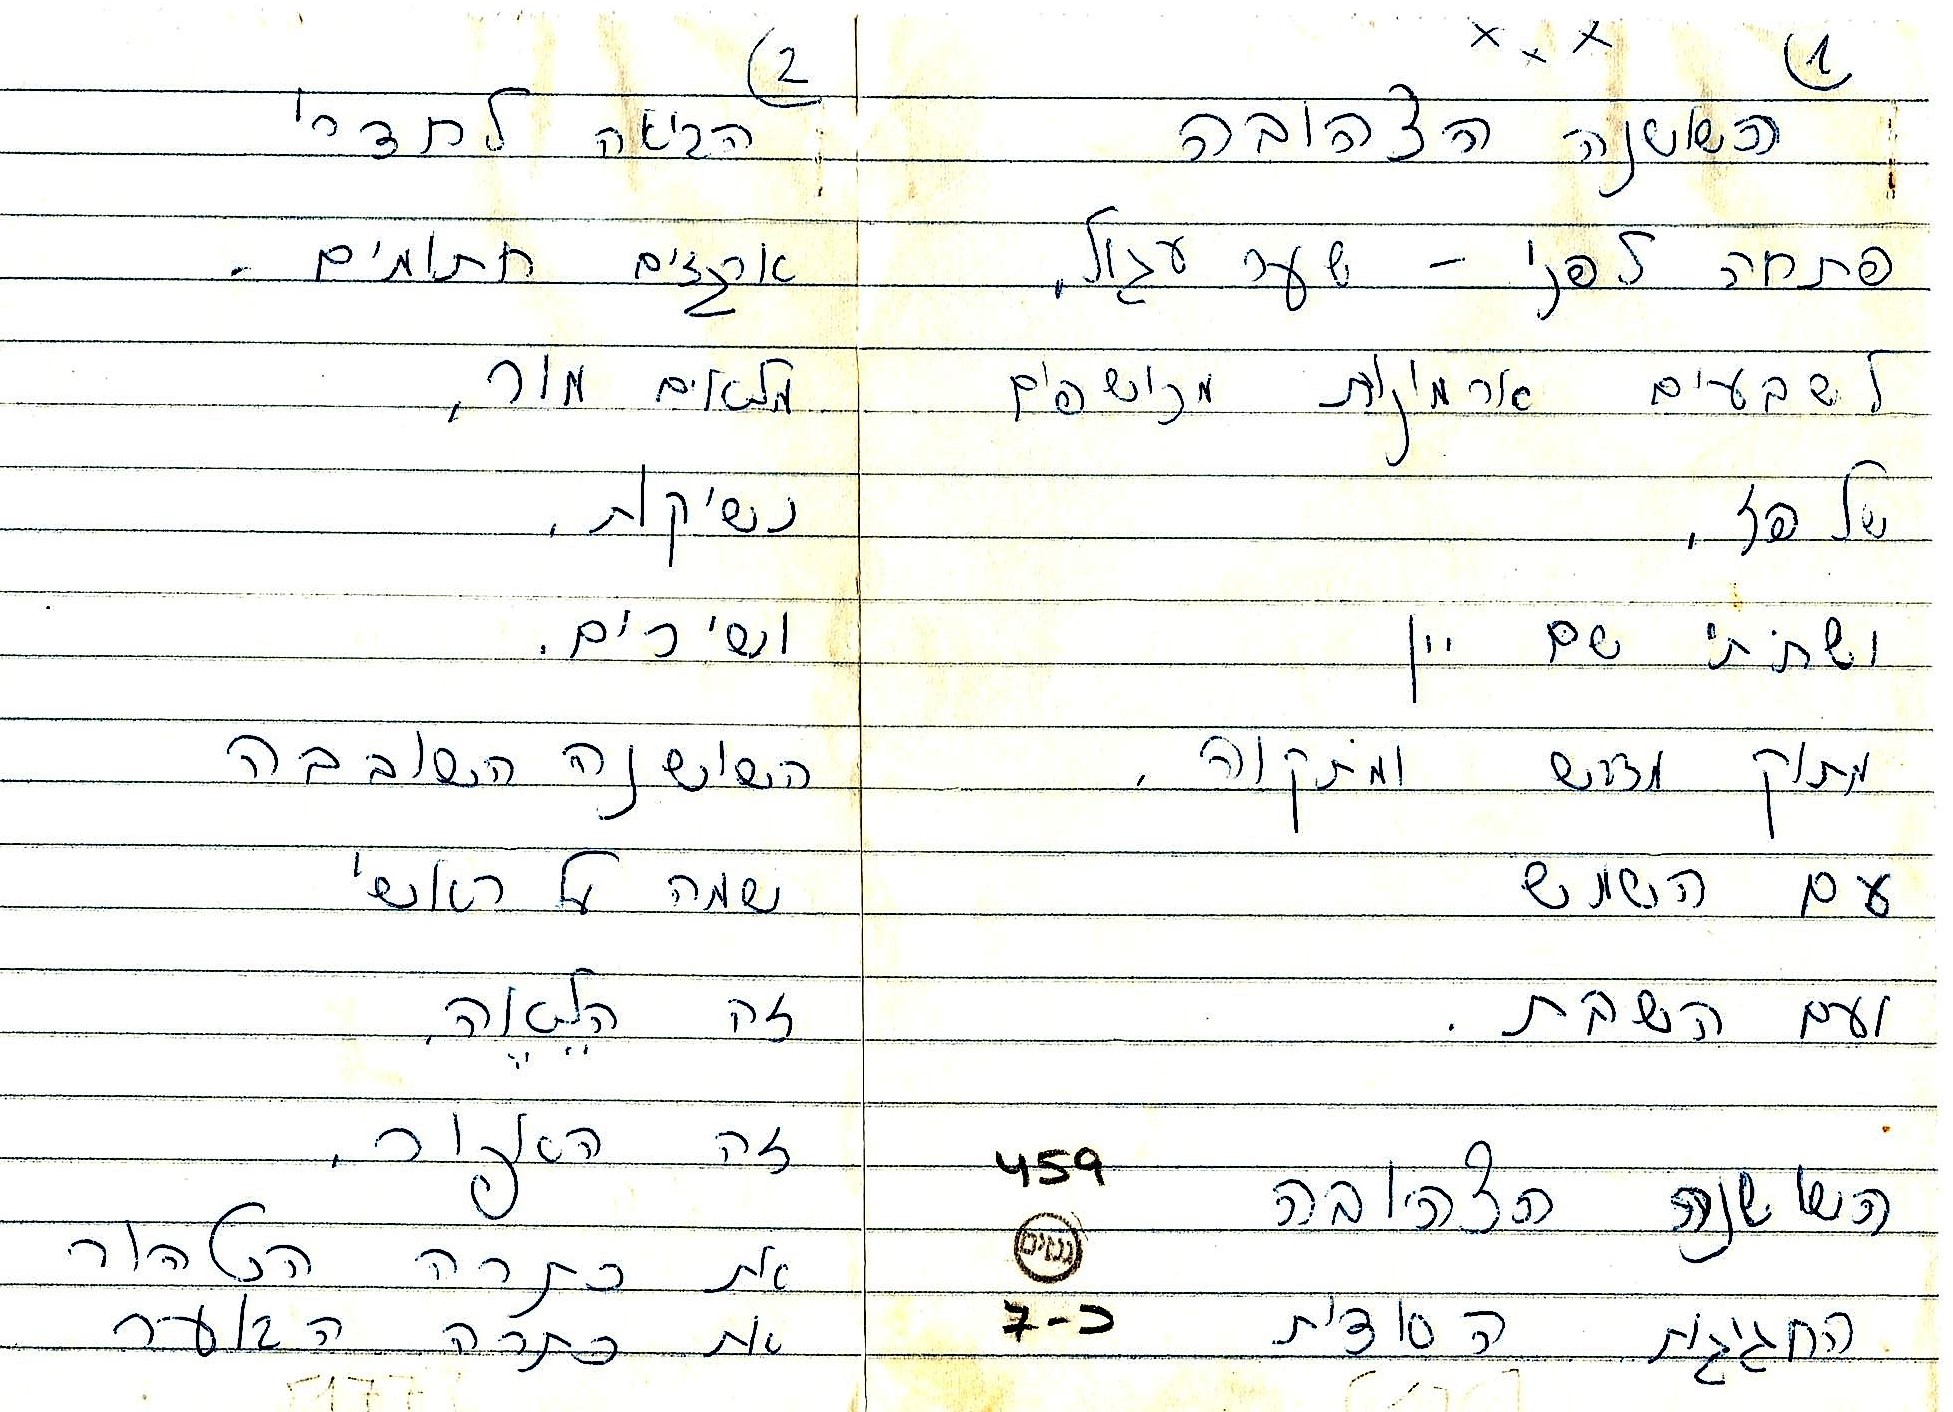 (1
x x x
השושנה הצהובה
פתחה לפני – שער עגול,
לשבעים ארמונות מכושפים
של פז,
ושתיתי שם יין
מתוק מדבש ומתקוה,
עם השמש
ועם השבת.
השושנה הצהובה
החגיגית הסודית
459
גנזים
כ-7
(2
הביאה לחדרי
ארגזים חתומים -
מלאים מור,
נשיקות,
ושירים.
השושנה השובבה
שמה על ראשי
זה הלֵאֶה,
זה האפור,
את כתרה הטהור
את כתרה הבוער